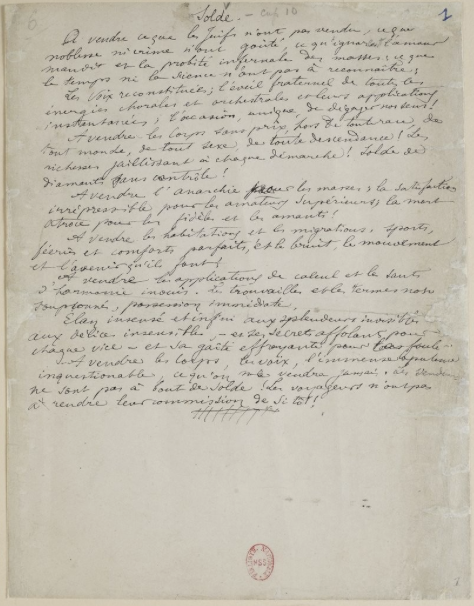 Solde.
1
A vendre ce que les Juifs n'ont pas vendu, ce que
noblesse ni crime n'ont goûté ce qu'ignorent l'amour
maudit et la probité infernale des masses : ce que
le temps ni la science n'ont pas à reconnaître :
Les Voix reconstituées ; l'éveil fraternel de toutes les
énergies chorales et orchestrales et leurs applications
instantanées ; l'occasion, unique, de dégager nos sens !
A vendre les Corps sans prix, hors de toute race, de
tout monde, de tout sexe, de toute descendance ! Les
richesses jaillissant à chaque démarche ! Solde de
diamants sans contrôle !
A vendre l'anarchie pour les masses ; la satisfaction
irrépressible pour les amateurs supérieurs ; la mort
atroce pour les fidèles et les amants !
A vendre les habitations et les migrations, sports,
féeries et comforts parfaits, et le bruit, le mouvement
et l'avenir qu'ils font !
A vendre les applications de calcul et les sauts
d'harmonie inouïs. Les trouvailles et les termes non
soupçonnés, possession immédiate,
Elan insensé et infini aux splendeurs invisibles,
aux délices insensibles — et ses secrets affolants pour
chaque vice — et sa gaîté effrayante pour la foule —
— A vendre les Corps, les voix, l'immense opulence
inquestionable, ce qu'on ne vendra jamais. Les vendeurs
ne sont pas à bout de solde ! Les voyageurs n'ont pas
à rendre leur commission de si tôt !